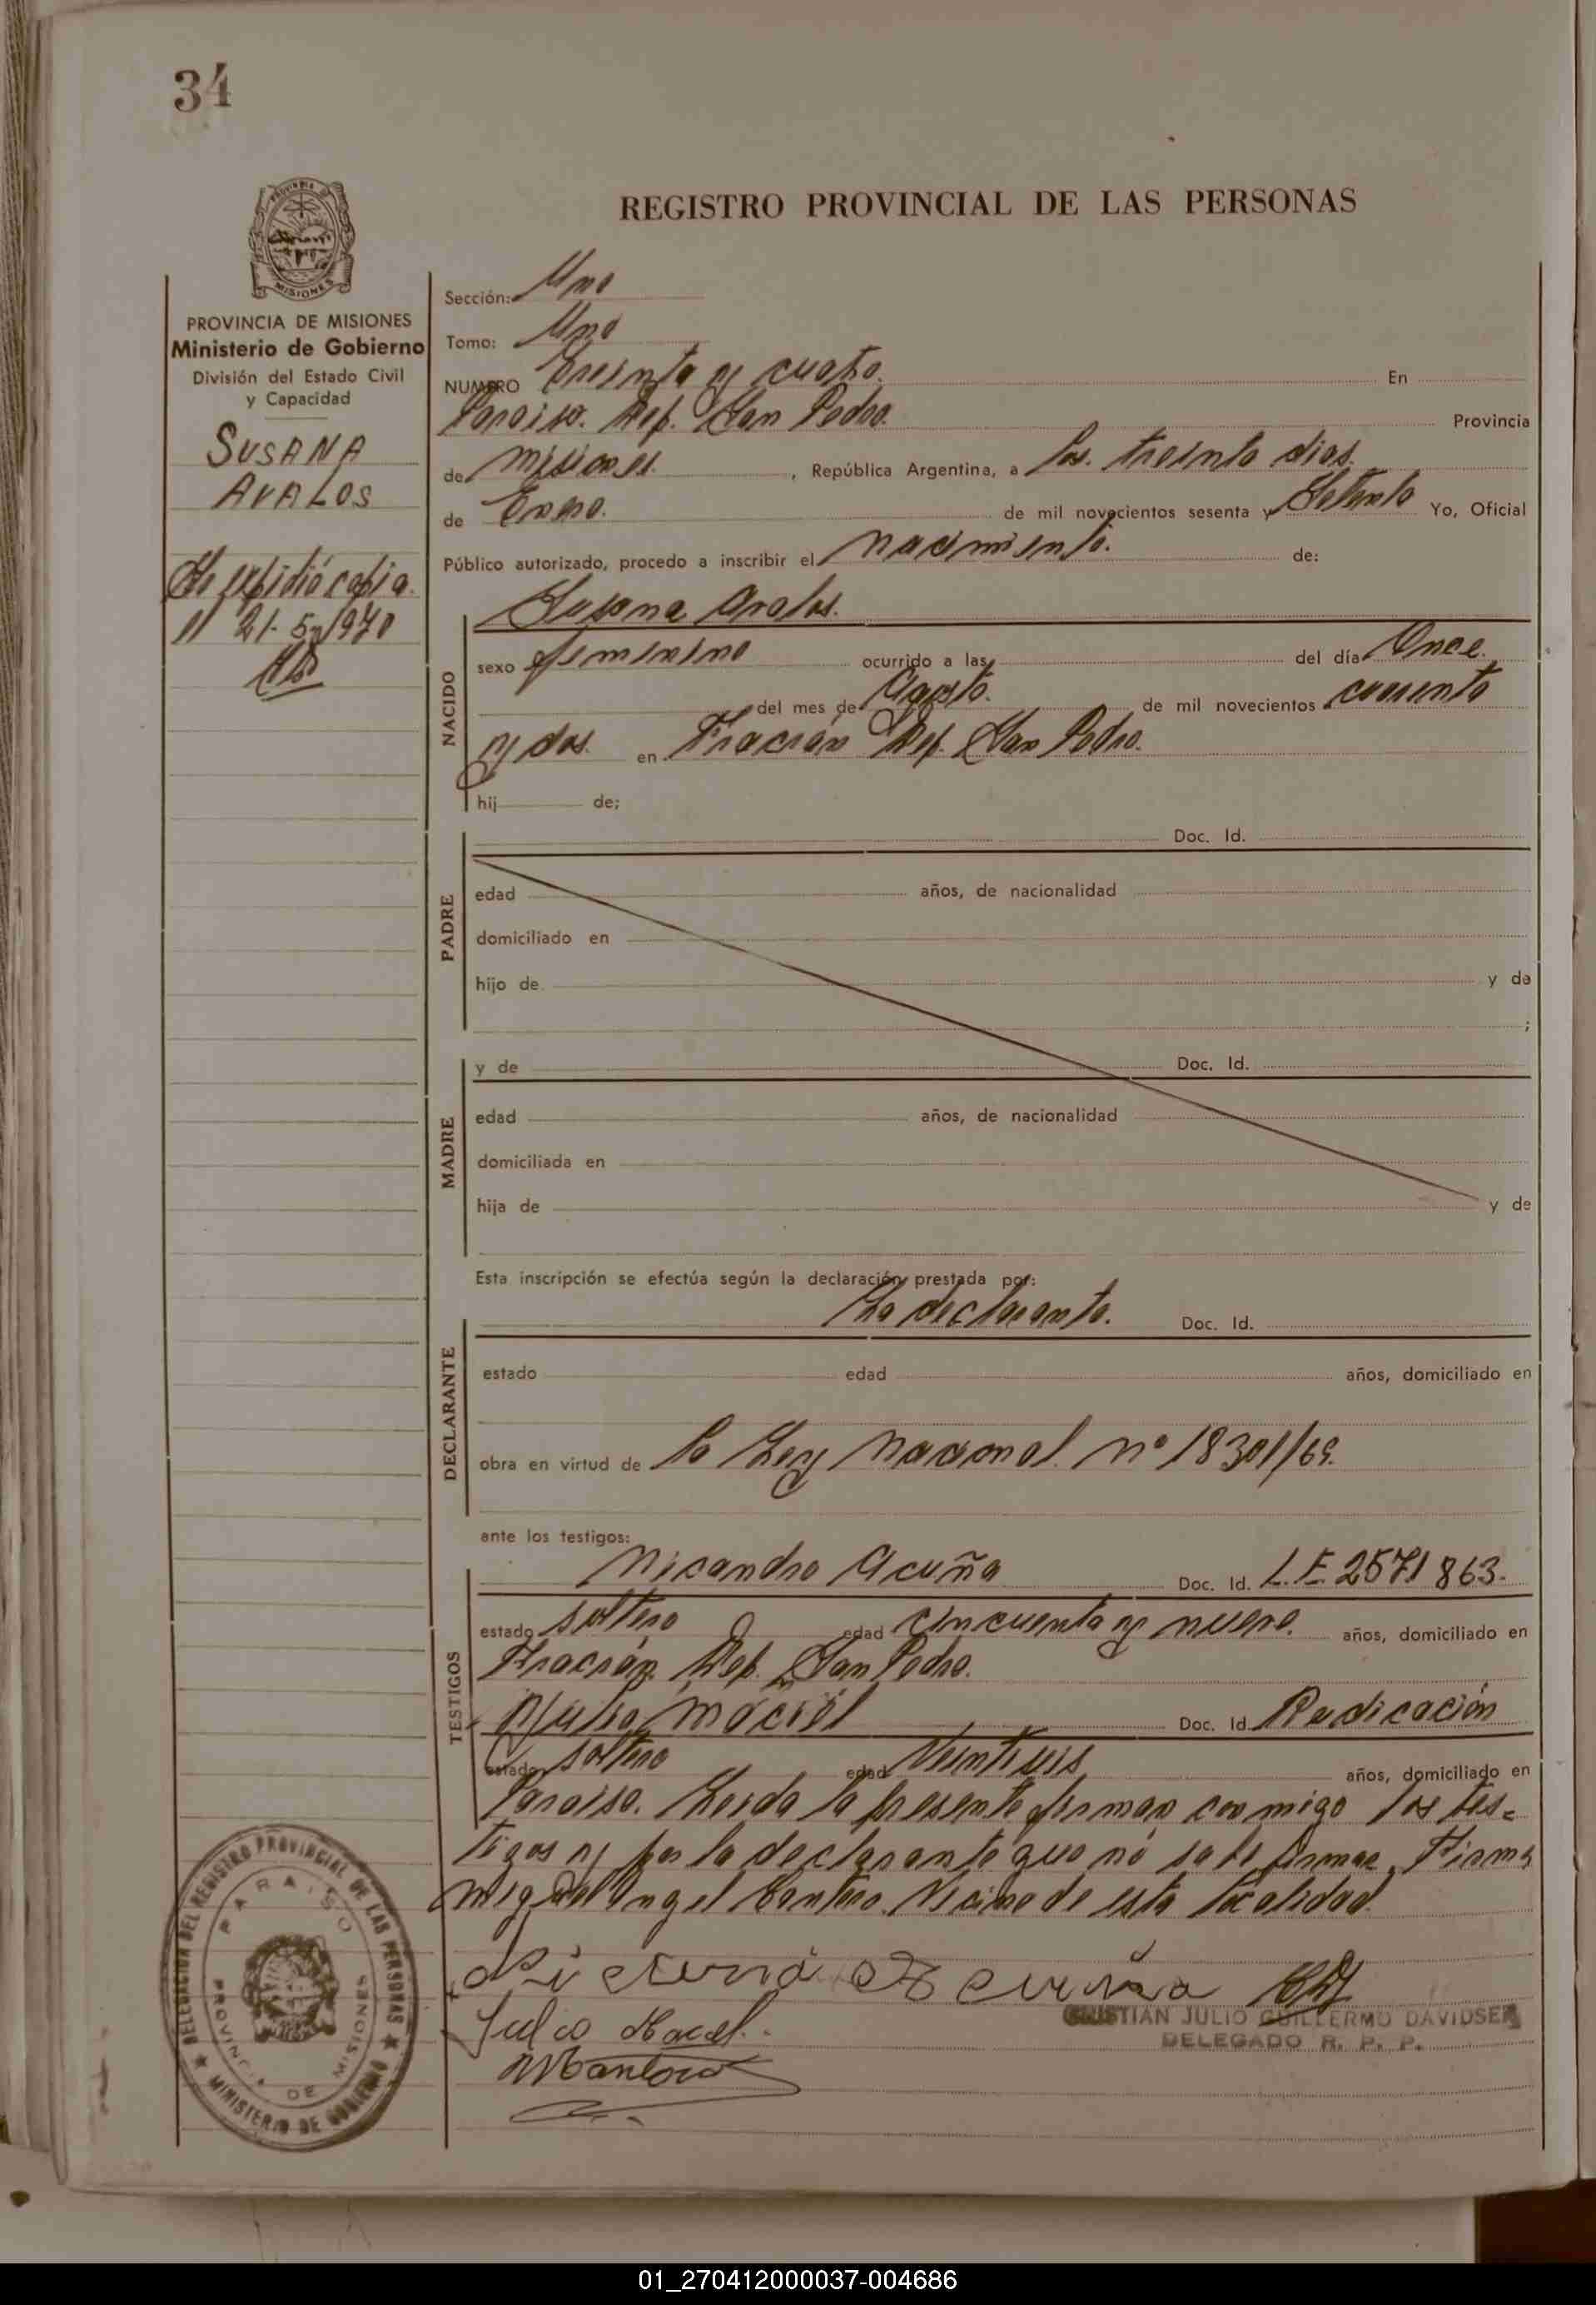 34
REGISTRO PROVINCIAL DE LAS PERSONAS
PROVINCIA DE MISIONES
Ministerio de Gobierno
División del Estado Civil
y Capacidad
SUSANA
AVALOS
Se expidió copia
21-5-1970
Sección: Uno
Tomo: Uno
NUMERO Treinta y cuatro. En
Paraiso. Dep. San Pedro. Provincia
de Misiones. , República Argentina, a los treinta dias
de Enero. de mil novecientos sesenta y Setenta Yo, Oficial
Público autorizado, procedo a inscribir el nacimiento. de:
Susana Avalos.
NACIDO
sexo femenino ocurrido a las del día Once
del mes de Agosto. de mil novecientos cuarenta
y dos. en Fracrán Dep. San Pedro.
hij de;
PADRE
Doc. Id.
edad años, de nacionalidad
domiciliado en
hijo de y de
;
MADRE
y de Doc. Id.
edad años, de nacionalidad
domiciliada en
hija de y de
Esta inscripción se efectúa según la declaración prestada por:
DECLARANTE
La declarante. Doc. Id.
estado edad años, domiciliado en
obra en virtud de la Ley Nacional nº 18301/69.
ante los testigos:
TESTIGOS
Nicandro Acuña Doc. Id. L.E. 2571863.
estado soltero edad cincuenta y nueve. años, domiciliado en
Fracrán Dep. San Pedro.
y Julio Maciel Doc. Id. Radicación
estado soltero edad Veintiseis años, domiciliado en
Paraiso. Leida la presente firman conmigo los tes=
tigos y por la declarante que nó sabe firmar. Firma
Miguel Angel Cantero. Vecino de esta localidad.
Acuña
Julio
CRISTIAN JULIO GUILLERMO DAVIDSEN
DELEGADO R. P. P.
DELEGACION DEL REGISTRO PROVINCIAL DE LAS PERSONAS
MINISTERIO DE GOBIERNO
PARAISO
PROVINCIA DE MISIONES
01_270412000037-004686